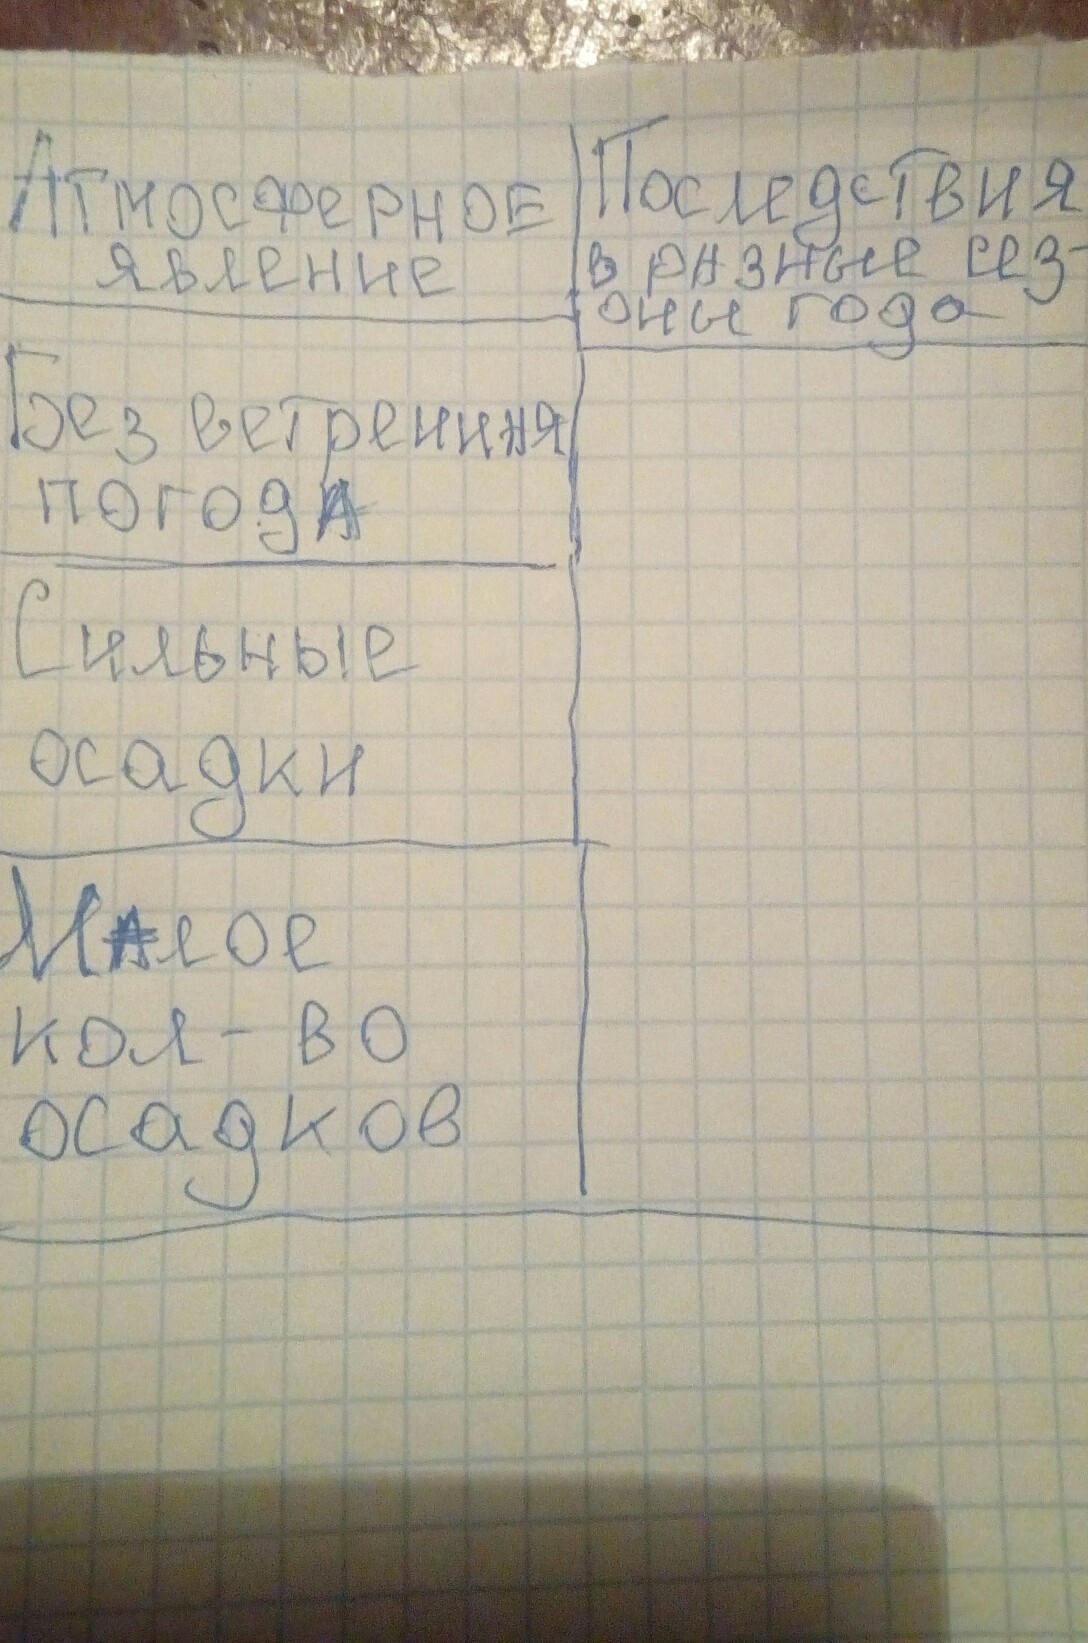 Атмосферное
явление
Последствия
в разные сез-
оны года
Без ветренная
погода
Сильные
осадки
Малое
кол-во
осадков